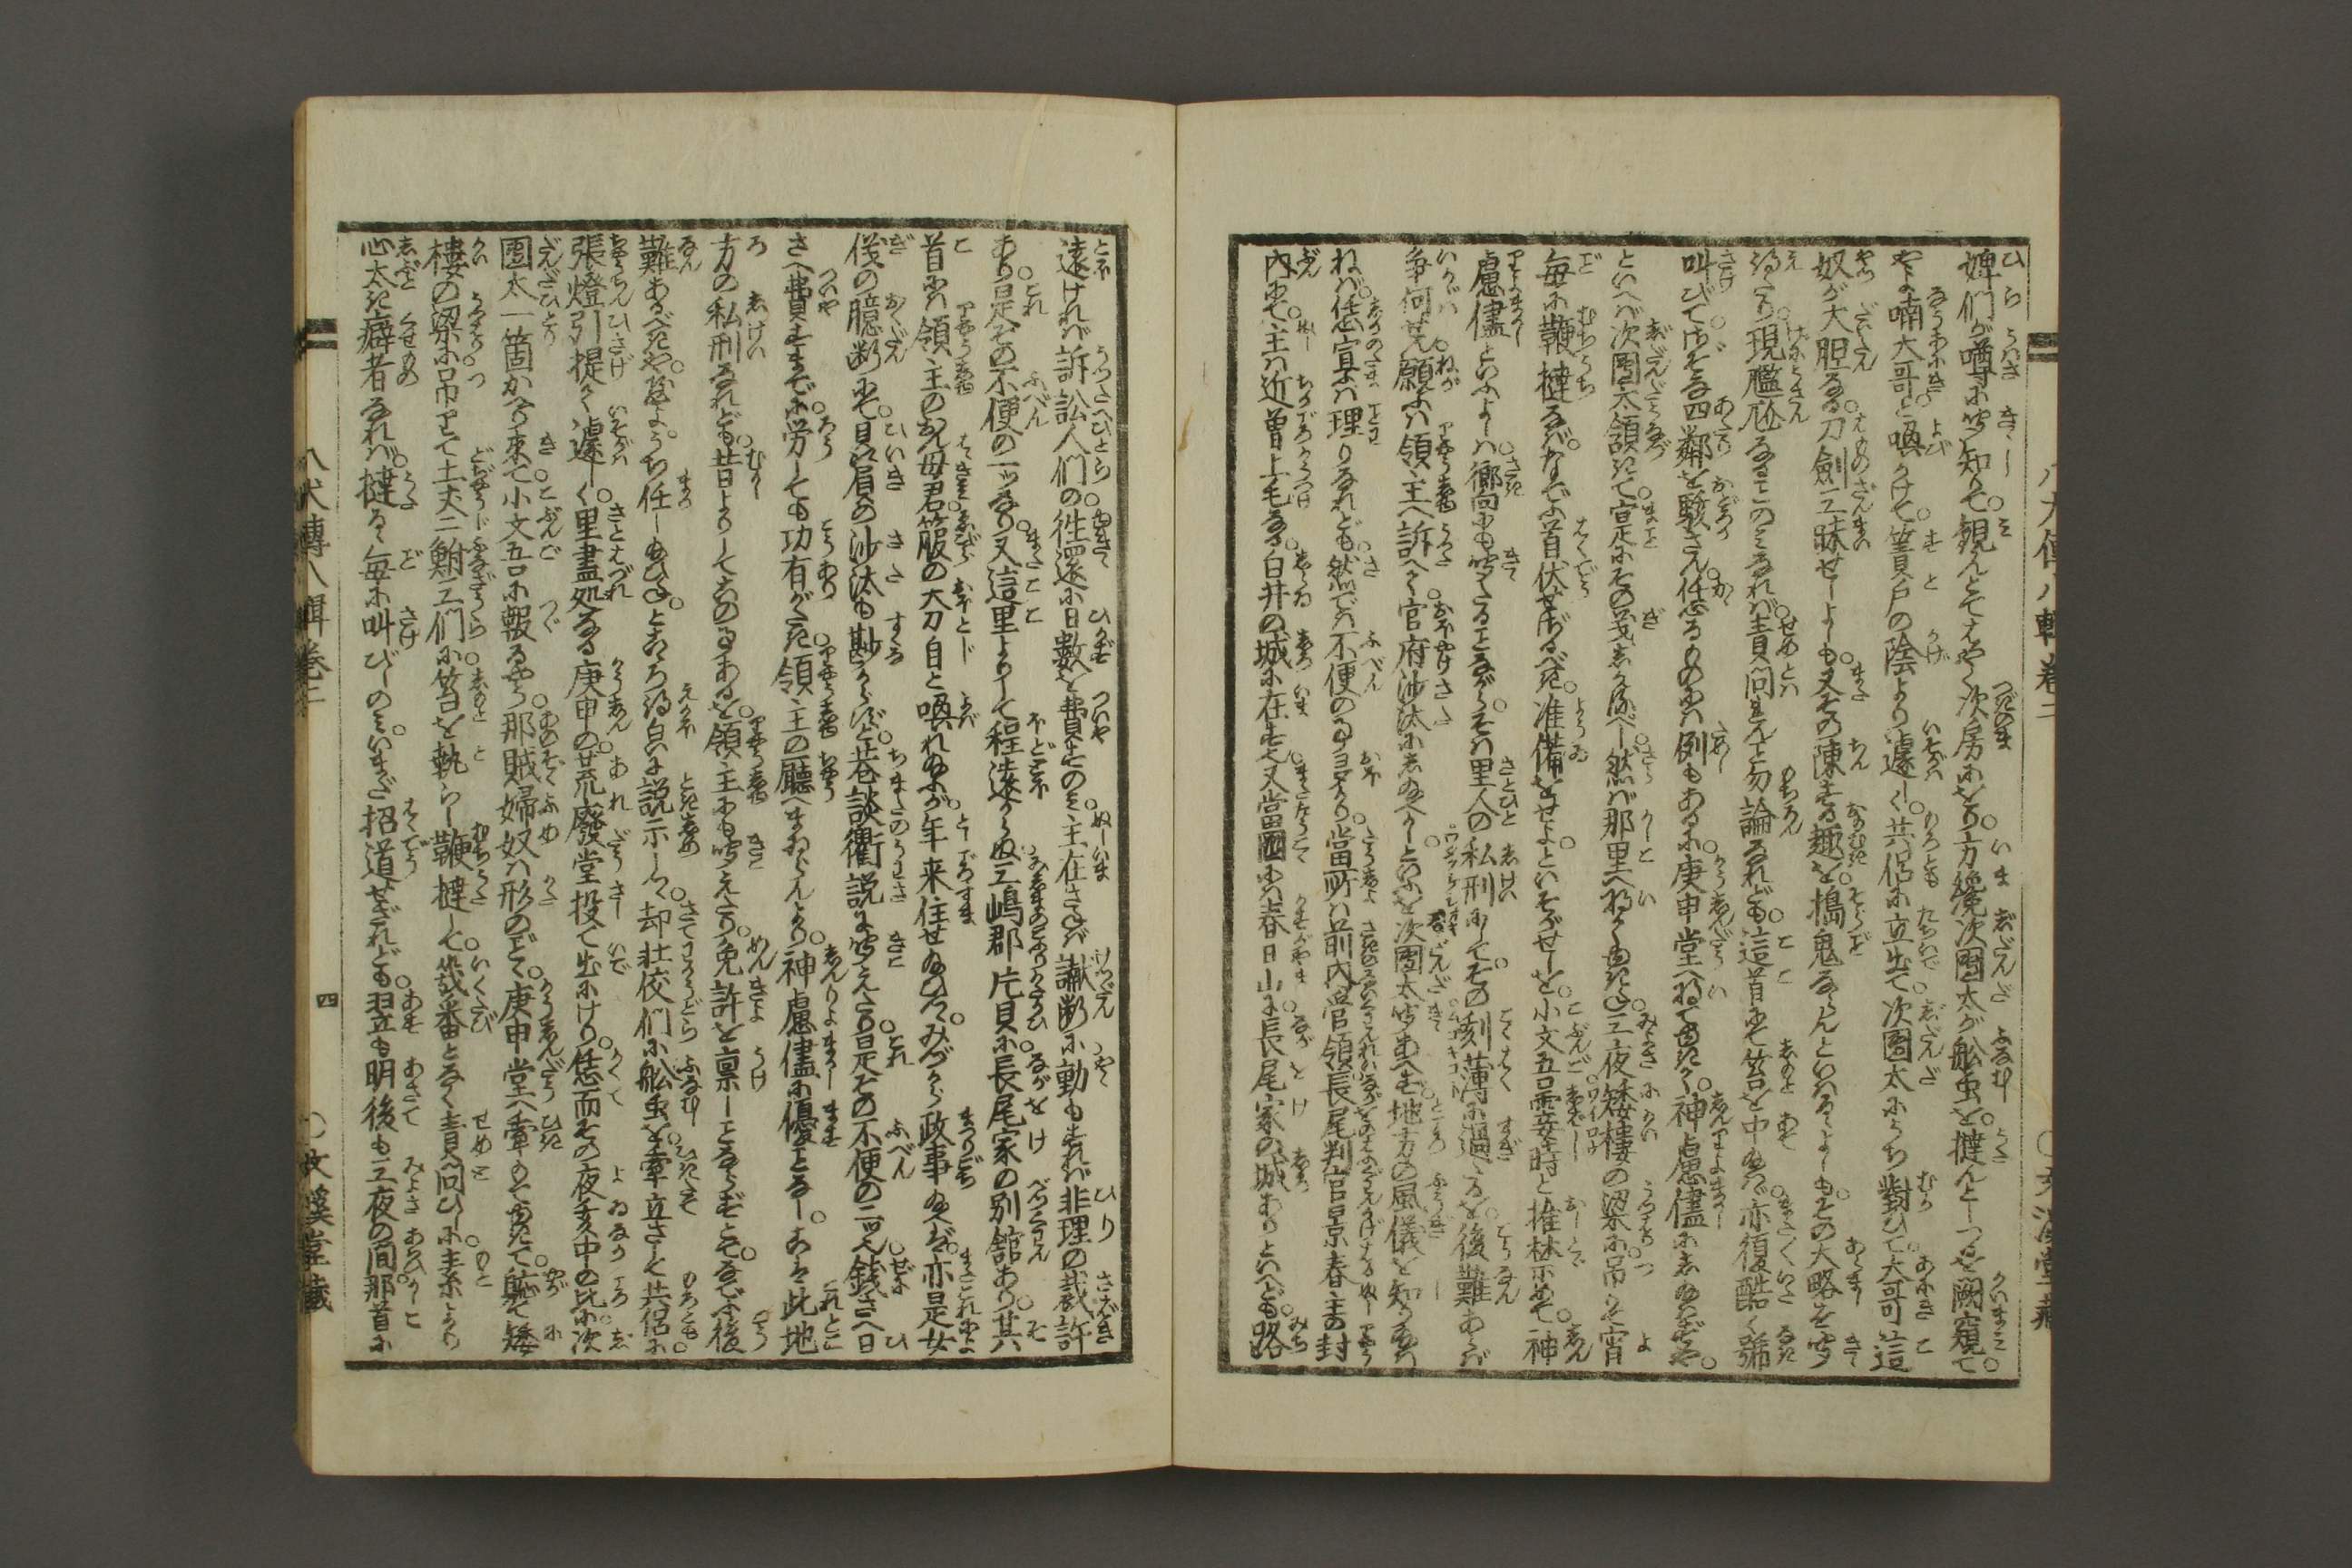 婢們が噂に聞知りて。覘んとてはやく次房にをり。方纔次團太が舩虫を。撻んとしつるを闕窺て。
やよ喃大哥と喚かけて。簀戸の陰より遽しく。共侶に立出て。次團太にうち對ひて大哥這
奴が大胆なる。刀劍三昧せしよしも。又その陳ずる趣を。搗鬼ならんといはるゝよしも。その大略を聞
得たり。現贓
叫びて。さぞな四鄰を駭さん。恁るものには例もあるに。庚申堂へ將てゆきて。神慮儘にし給はずや。
といへば次團太頷きて。寔にその義しかるべし。然ば那里へ將てゆきね。三夜矮樓の梁に吊りて。宵
毎に鞭撻たば。などて首伏せざるべき。准備をせよ。といそがせしを。小文五霎時と推禁めて。神
慮儘といふよしは。嚮にも聞たることながら。そは里人の私刑にして。その刻薄に過たるを。後難あらば
争何せん。願ふは領主へ訴へて。官府沙汰にし給へかし。といふを次團太聞あへず。地方の風儀を知らねば
ねば。恁宣ふは理りなれども。然では不便の事ヨあり。當所は前内管領長尾判官景春主の封
内にて。主は近曽上毛なる。白井の城に在せり。又當國には春日山に長尾家の城ありといへども。路
遠ければ訴訟人們の。徃還に日數を費すのみ。主在さねば讞断に動もすれば非理の裁許
あり。是その不便の一ッなり。又這里よりして程遠からぬ。三嶋郡片貝に長尾家の別舘あり。其
首には領主のおん母君。箙の大刀自と喚れ給ふが。年来住せ給ひて。みづから政事給へば。亦是女
儀の臆断にて。贔屓の沙汰も尠からずと。巷談衢説に聞えたり。是その不便の二ッ。銭さへ日
さへ費すまでに。労しても功有がたき。領主の廳へまゐらんより。神慮儘に優ことなし。こは此地
方の私刑なれども。昔よりしてこの事あるを。領主にも聞えたり。免許を稟しことならずとも。などて後
難あるべきや。やよ。うち任し給ひね。とこゝろ得㒵に説示しつ。却壮佼們に舩虫を。牽立させて共侶に
張燈引提て遽しく。里盡処なる庚申の。荒廢堂投て出にけり。恁而その夜亥中の比に。次
團太一箇かへり来て。小文五に報るやう。那賊婦奴は形のごとく。庚申堂へ牽もてゆきて。軈て矮
樓の梁に吊りて。土丈二鮒三們に笞を執らし。鞭撻して。幾番となく責問ひしに。素より
心太き癖者なれば。撻るゝ毎に叫びしのみ。いまだ招道せざれども。翌も明後も三夜の間。那首に
八犬傳八輯卷二
四
○文溪堂藏